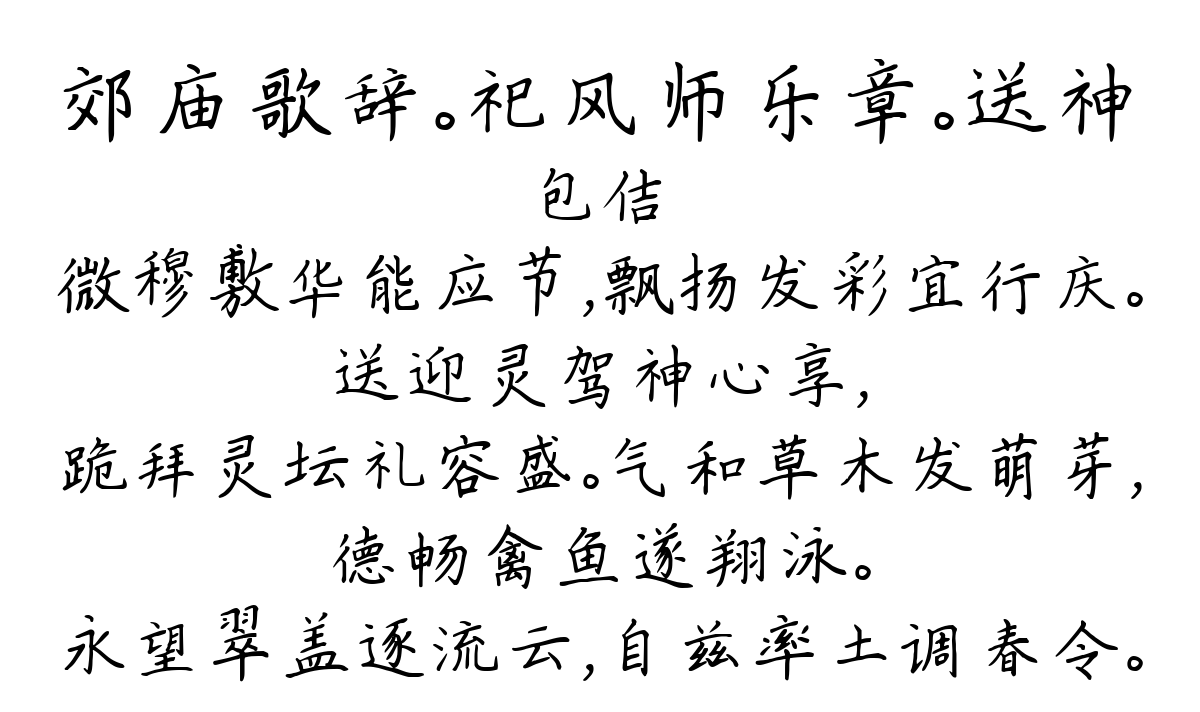 郊庙歌辞。祀风师乐章。送神
包佶
微穆敷华能应节,飘扬发彩宜行庆。
送迎灵驾神心享,
跪拜灵坛礼容盛。气和草木发萌芽,
德畅禽鱼遂翔泳。
永望翠盖逐流云,自兹率土调春令。